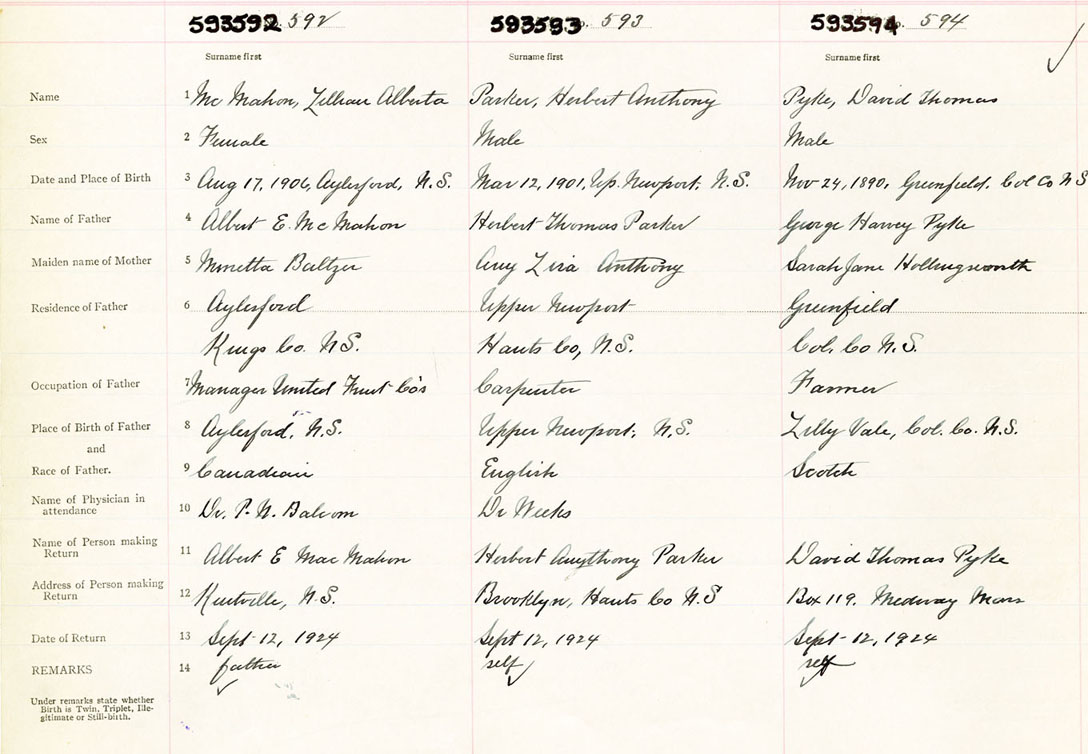 593592 592 593593 593 593594 594
Surname first Surname first Surname first
Name 1 Mc Mahon, Lillian Alberta Parker, Herbert Anthony Pyke, David Thomas
Sex 2 Female Male Male
Date and Place of Birth 3 Aug 17, 1906, Aylesford, N.S. Mar 12, 1901, Up. Newport, N.S. Nov 24, 1890, Greenfield, Col Co N S
Name of Father 4 Albert E. Mc Mahon Herbert Thomas Parker George Harvey Pyke
Maiden name of Mother 5 Minetta Baltzer Amy Anthony Sarah Jane Hollingsworth
Residence of Father 6 Aylesford Upper Newport Greenfield
Kings Co. N S. Hants Co, N.S. Col. Co N.S.
Occupation of Father 7 Manager United Fruit Co's Carpenter Farmer
Place of Birth of Father 8 Aylesford, N.S. Upper Newport, N.S. Lilly Vale, Col. Co. N.S.
and
Race of Father. 9 Canadian English Scotch
Name of Physician in
attendance 10 Dr. P. N. Balcom Dr Weeks
Name of Person making
Return 11 Albert E Mac Mahon Herbert Anythony Parker David Thomas Pyke
Address of Person making
Return 12 Kentville, N.S. Brooklyn, Hants Co N.S Box 119. Medway Mass
Date of Return 13 Sept 12, 1924 Sept 12, 1924 Sept 12, 1924
REMARKS 14 father self self
Under remarks state whether
Birth is Twin, Triplet, Ille-
gitimate or Still-birth.